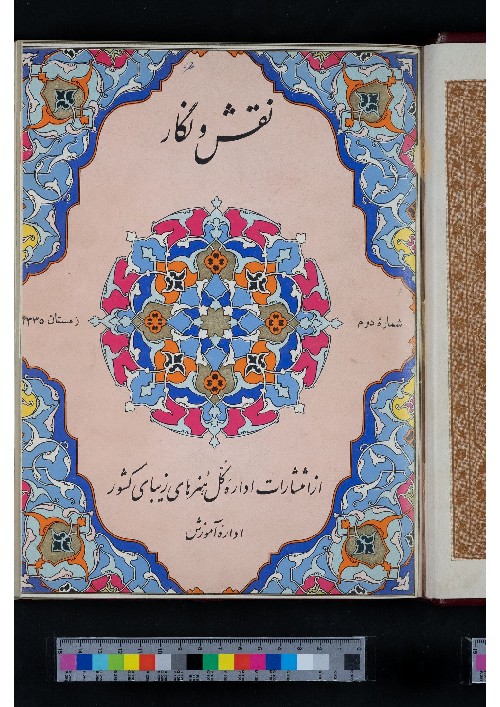 نقش و نگار
شمارهٔ دوم
زمستان ۱۳۳۵
از انتشارات اداره کل هنرهای زیبای کشور
اداره آموزش